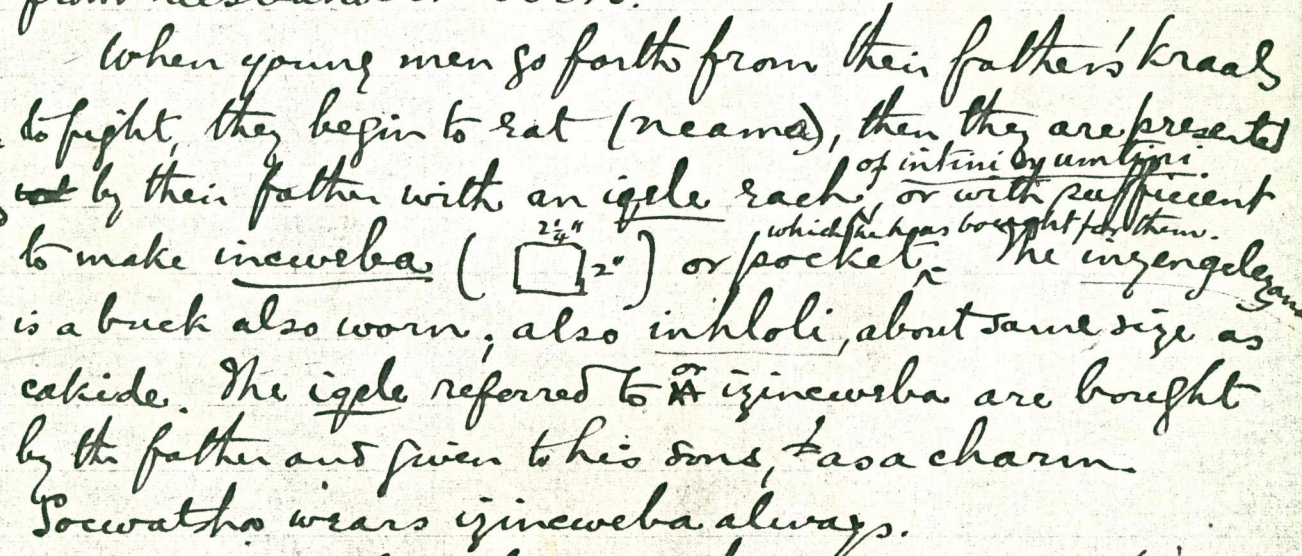 When young men go forth from their father's kraals
to fight, they begin to eat (ncama), then they are presented
by their father with an iqele each, or with sufficient
of intini by umtini
to make incweba ( 2¼" 2" ) or pocket
which he has bought for them. The inzengele
is a buck also worn; also inhloli, about same size as
cakide. The iqele referred to or izincweba are bought
by the father and given to his sons, & as a charm.
Socwatsha wears izincweba always.